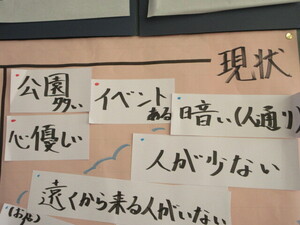 現状
公園
多い
イベント
ある
暗い(人通り)
心優しい
人が少ない
遠くから来る人がいない